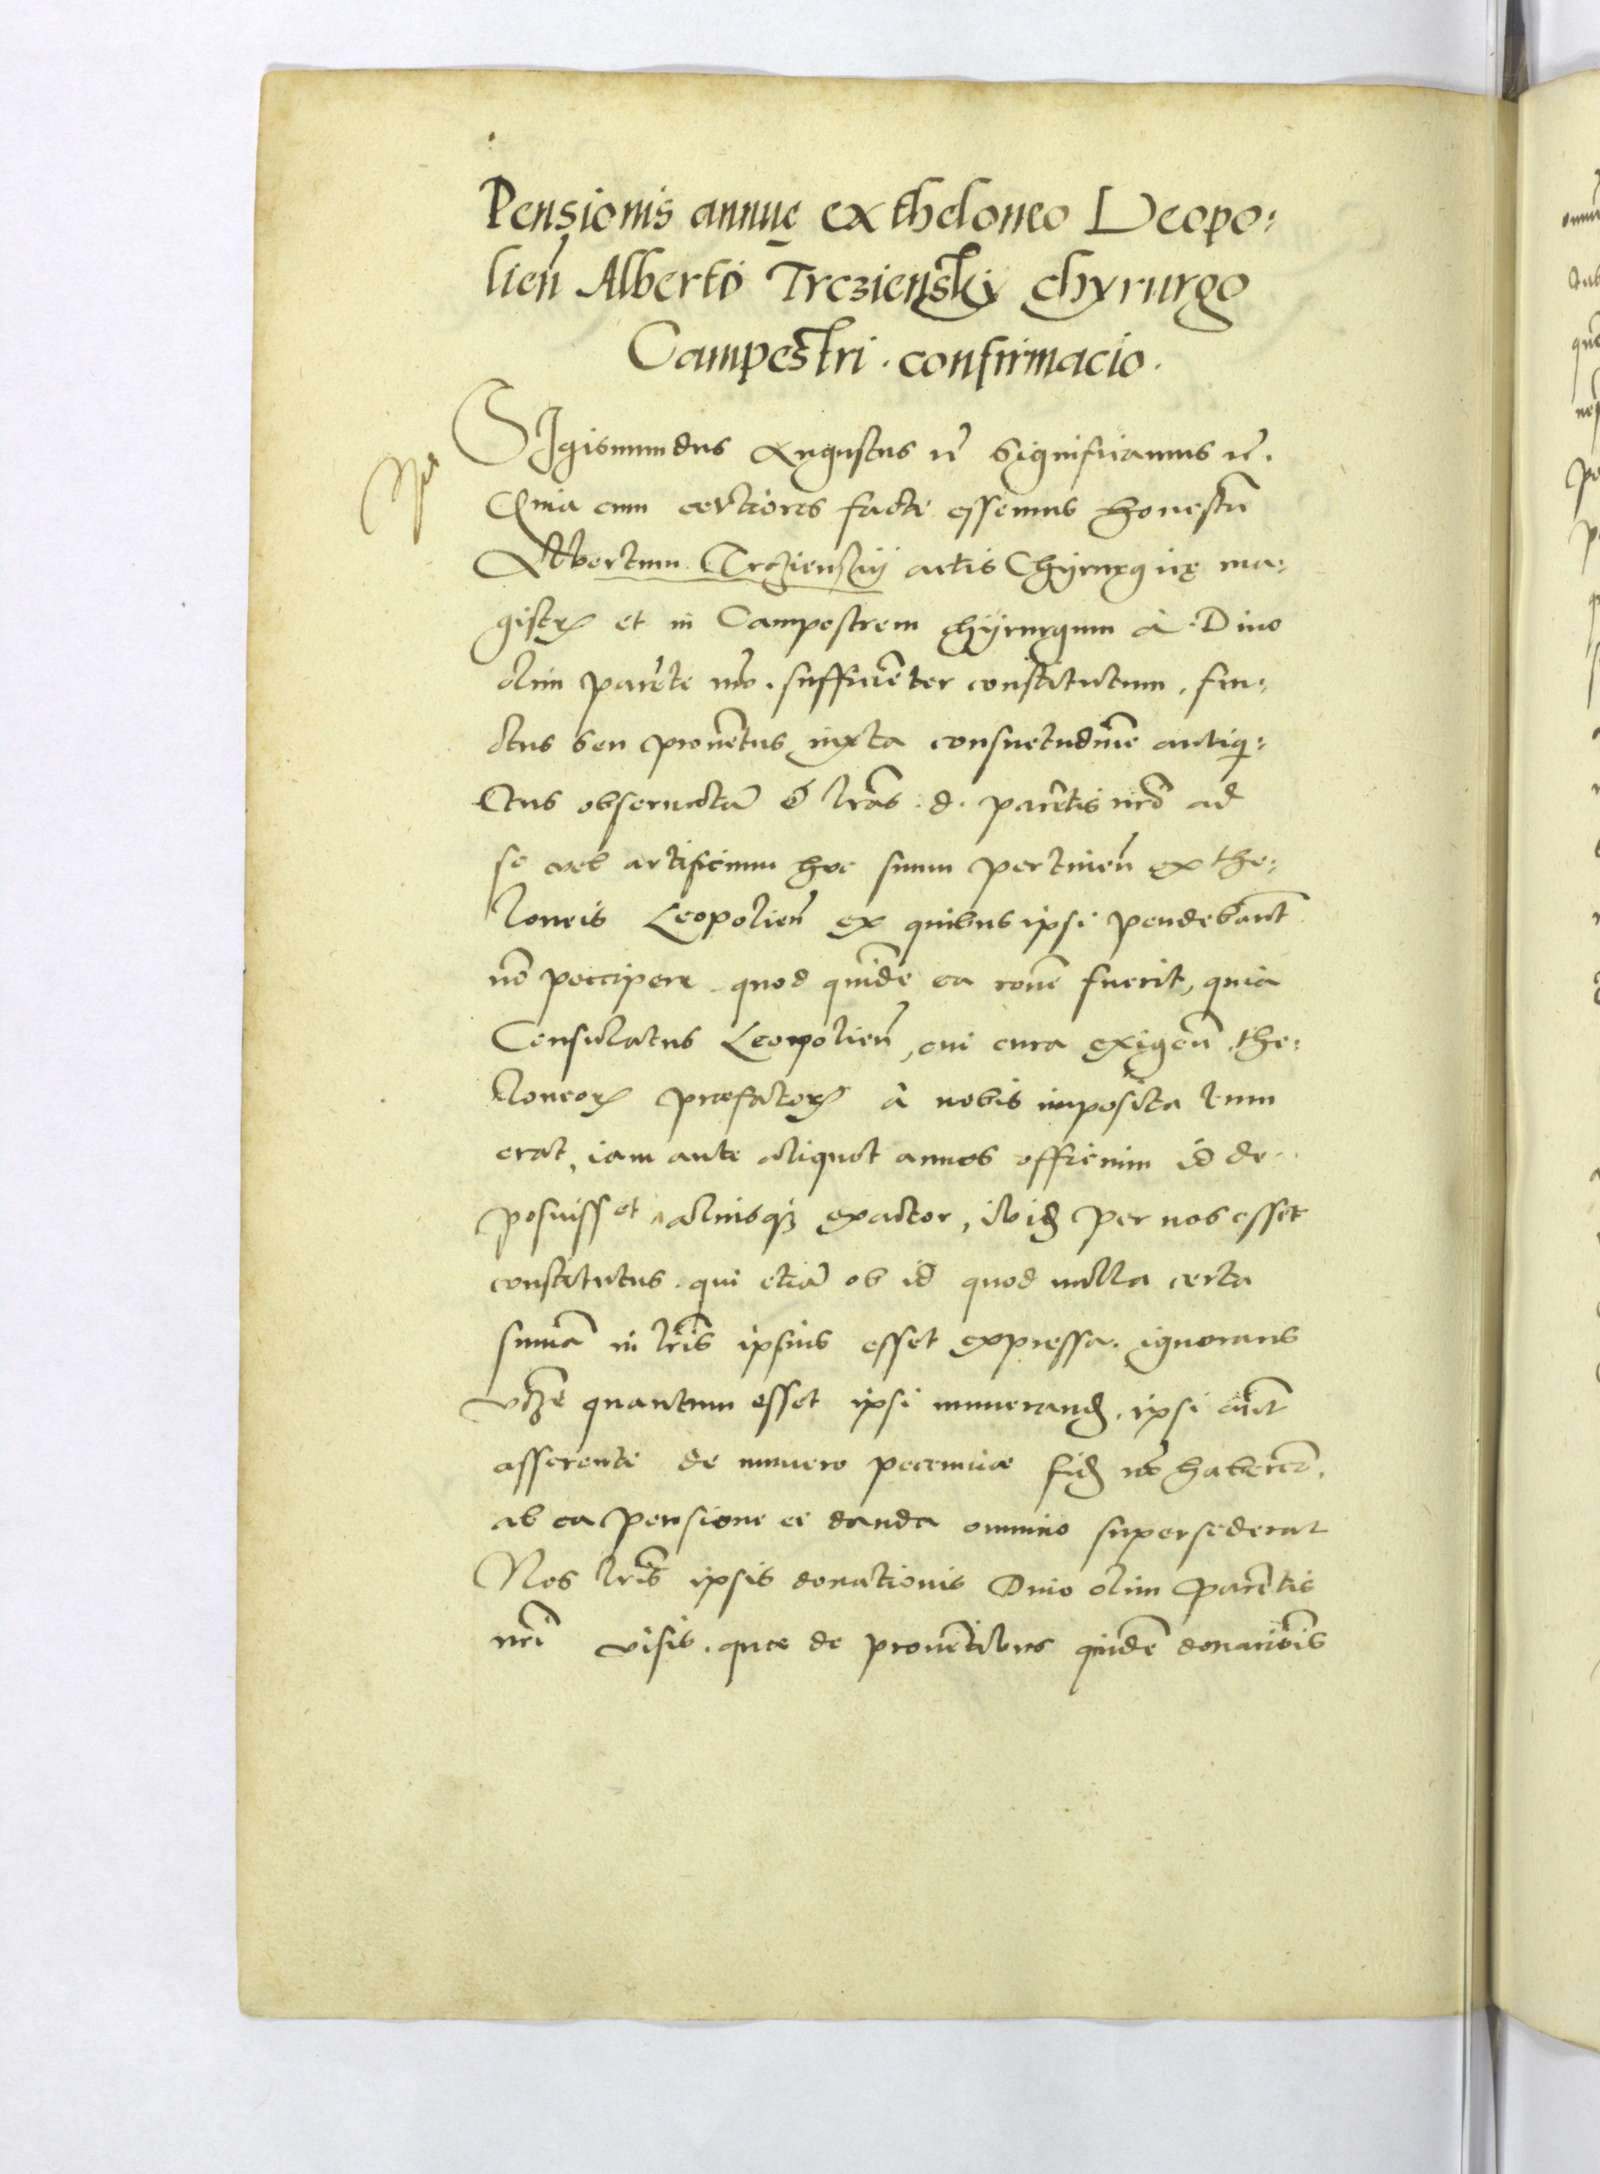 Pensionis annuę ex theloneo Leopo:
lień Alberto Trczienskÿ chyrurgo
Campestri. confirmacio.
SIgismundus Augustus rc̄ Significamus rc̄.
Quia cum certiores facti essemus honestū
Albertum Trczienskÿ artis Chÿrurgiię ma:
gistrꝝ et in Campestrem chÿrurgum à Diuo
olim parēte nr̄o. sufficiēter constitutum, fru:
ctus seu prouētus iuxta consuetudinē antiq̨:
itus obseruatā & lr̄as. d. parētis nr̄i ad
se vel artificium hoc suum pertineñ ex the:
loneis Leopolień ex quibus ipsi pendebant̄
nō percipere quod quidē ea rōne fuerit, quia
Consulatus Leopolień, cui cura exigeñ the:
loneorꝝ praefatorꝝ à nobis imposita tum
erat, iam ante aliquot annos officium id de
posuisset aliusqꝫ exactor, ibidꝫ per nos esset
constitutus. qui etiā ob id quod nulla certa
sum̄a in lr̄is ipsius esset expressa. ignorans
vtꝫe quantum esset ipsi numerandꝫ, ipsi aūt
asserenti de numero pecuniae fidꝫ nō haberet.
ab ea pensione ei danda omnino supersederat
Nos lr̄is ipsis donationis Diui olim parētis
nr̄i visis. quae de prouētibus quidē donatiōis